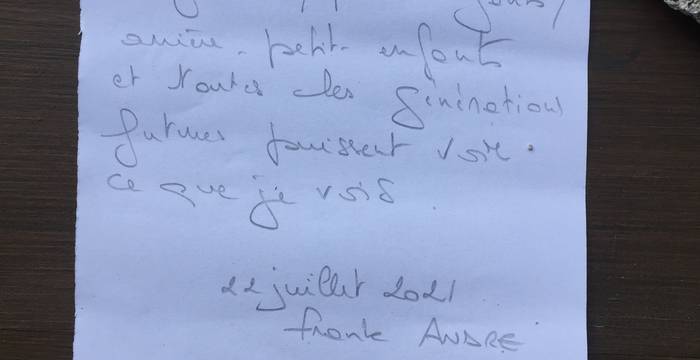 arrière-petit-enfants
et toutes les générations
futures puissent voir
ce que je vois.
22 juillet 2021
Frank ANDRE